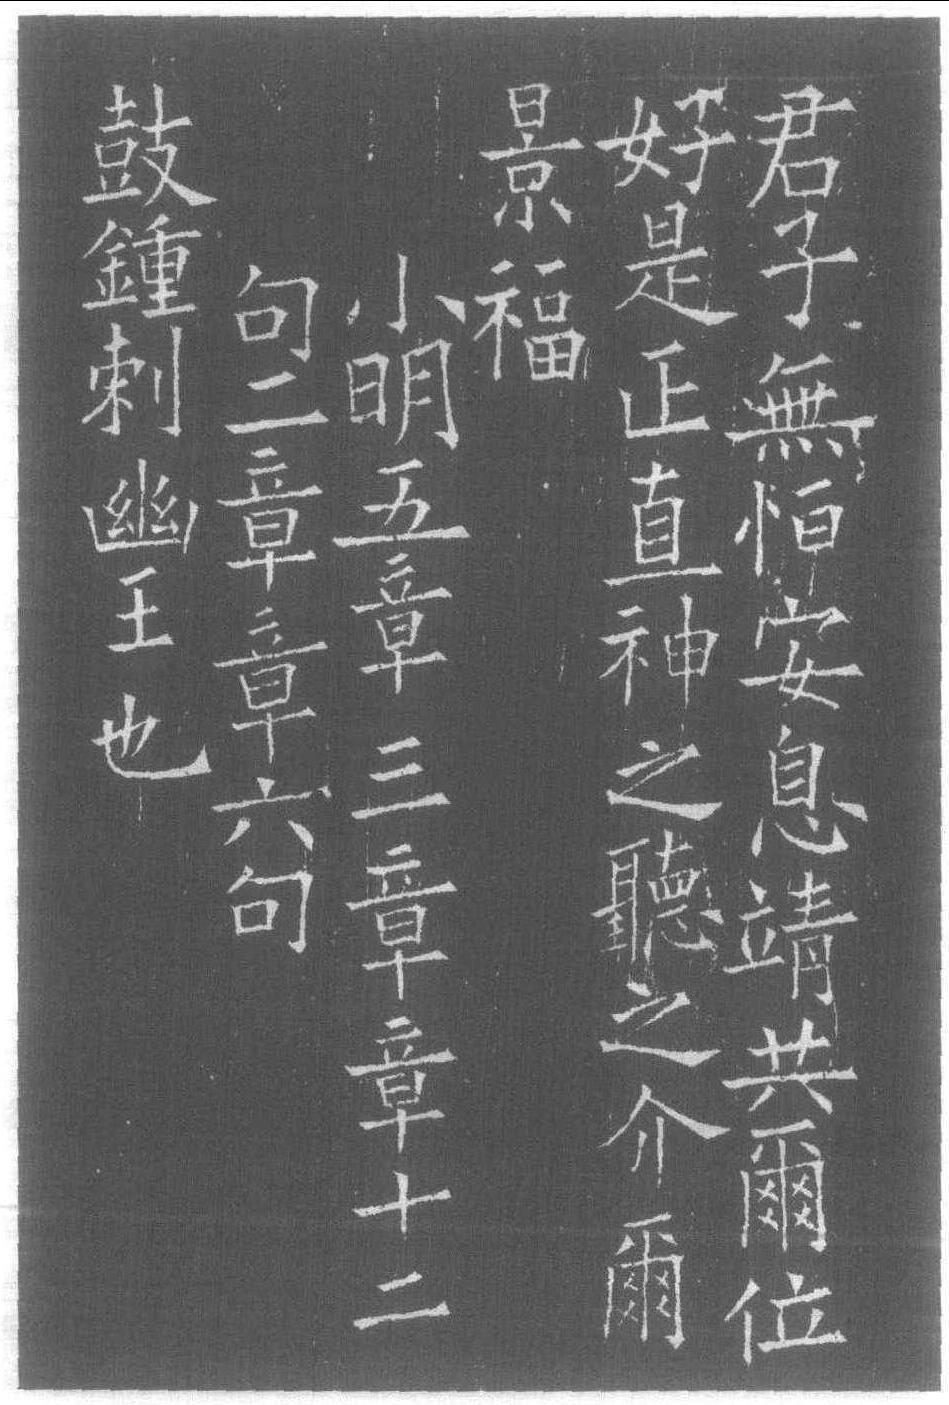 君子無恒安息靖共爾位
好是正直神之聽之介爾
景福
小明五章三章章十二
句二章章六句
鼓鍾刺幽王也